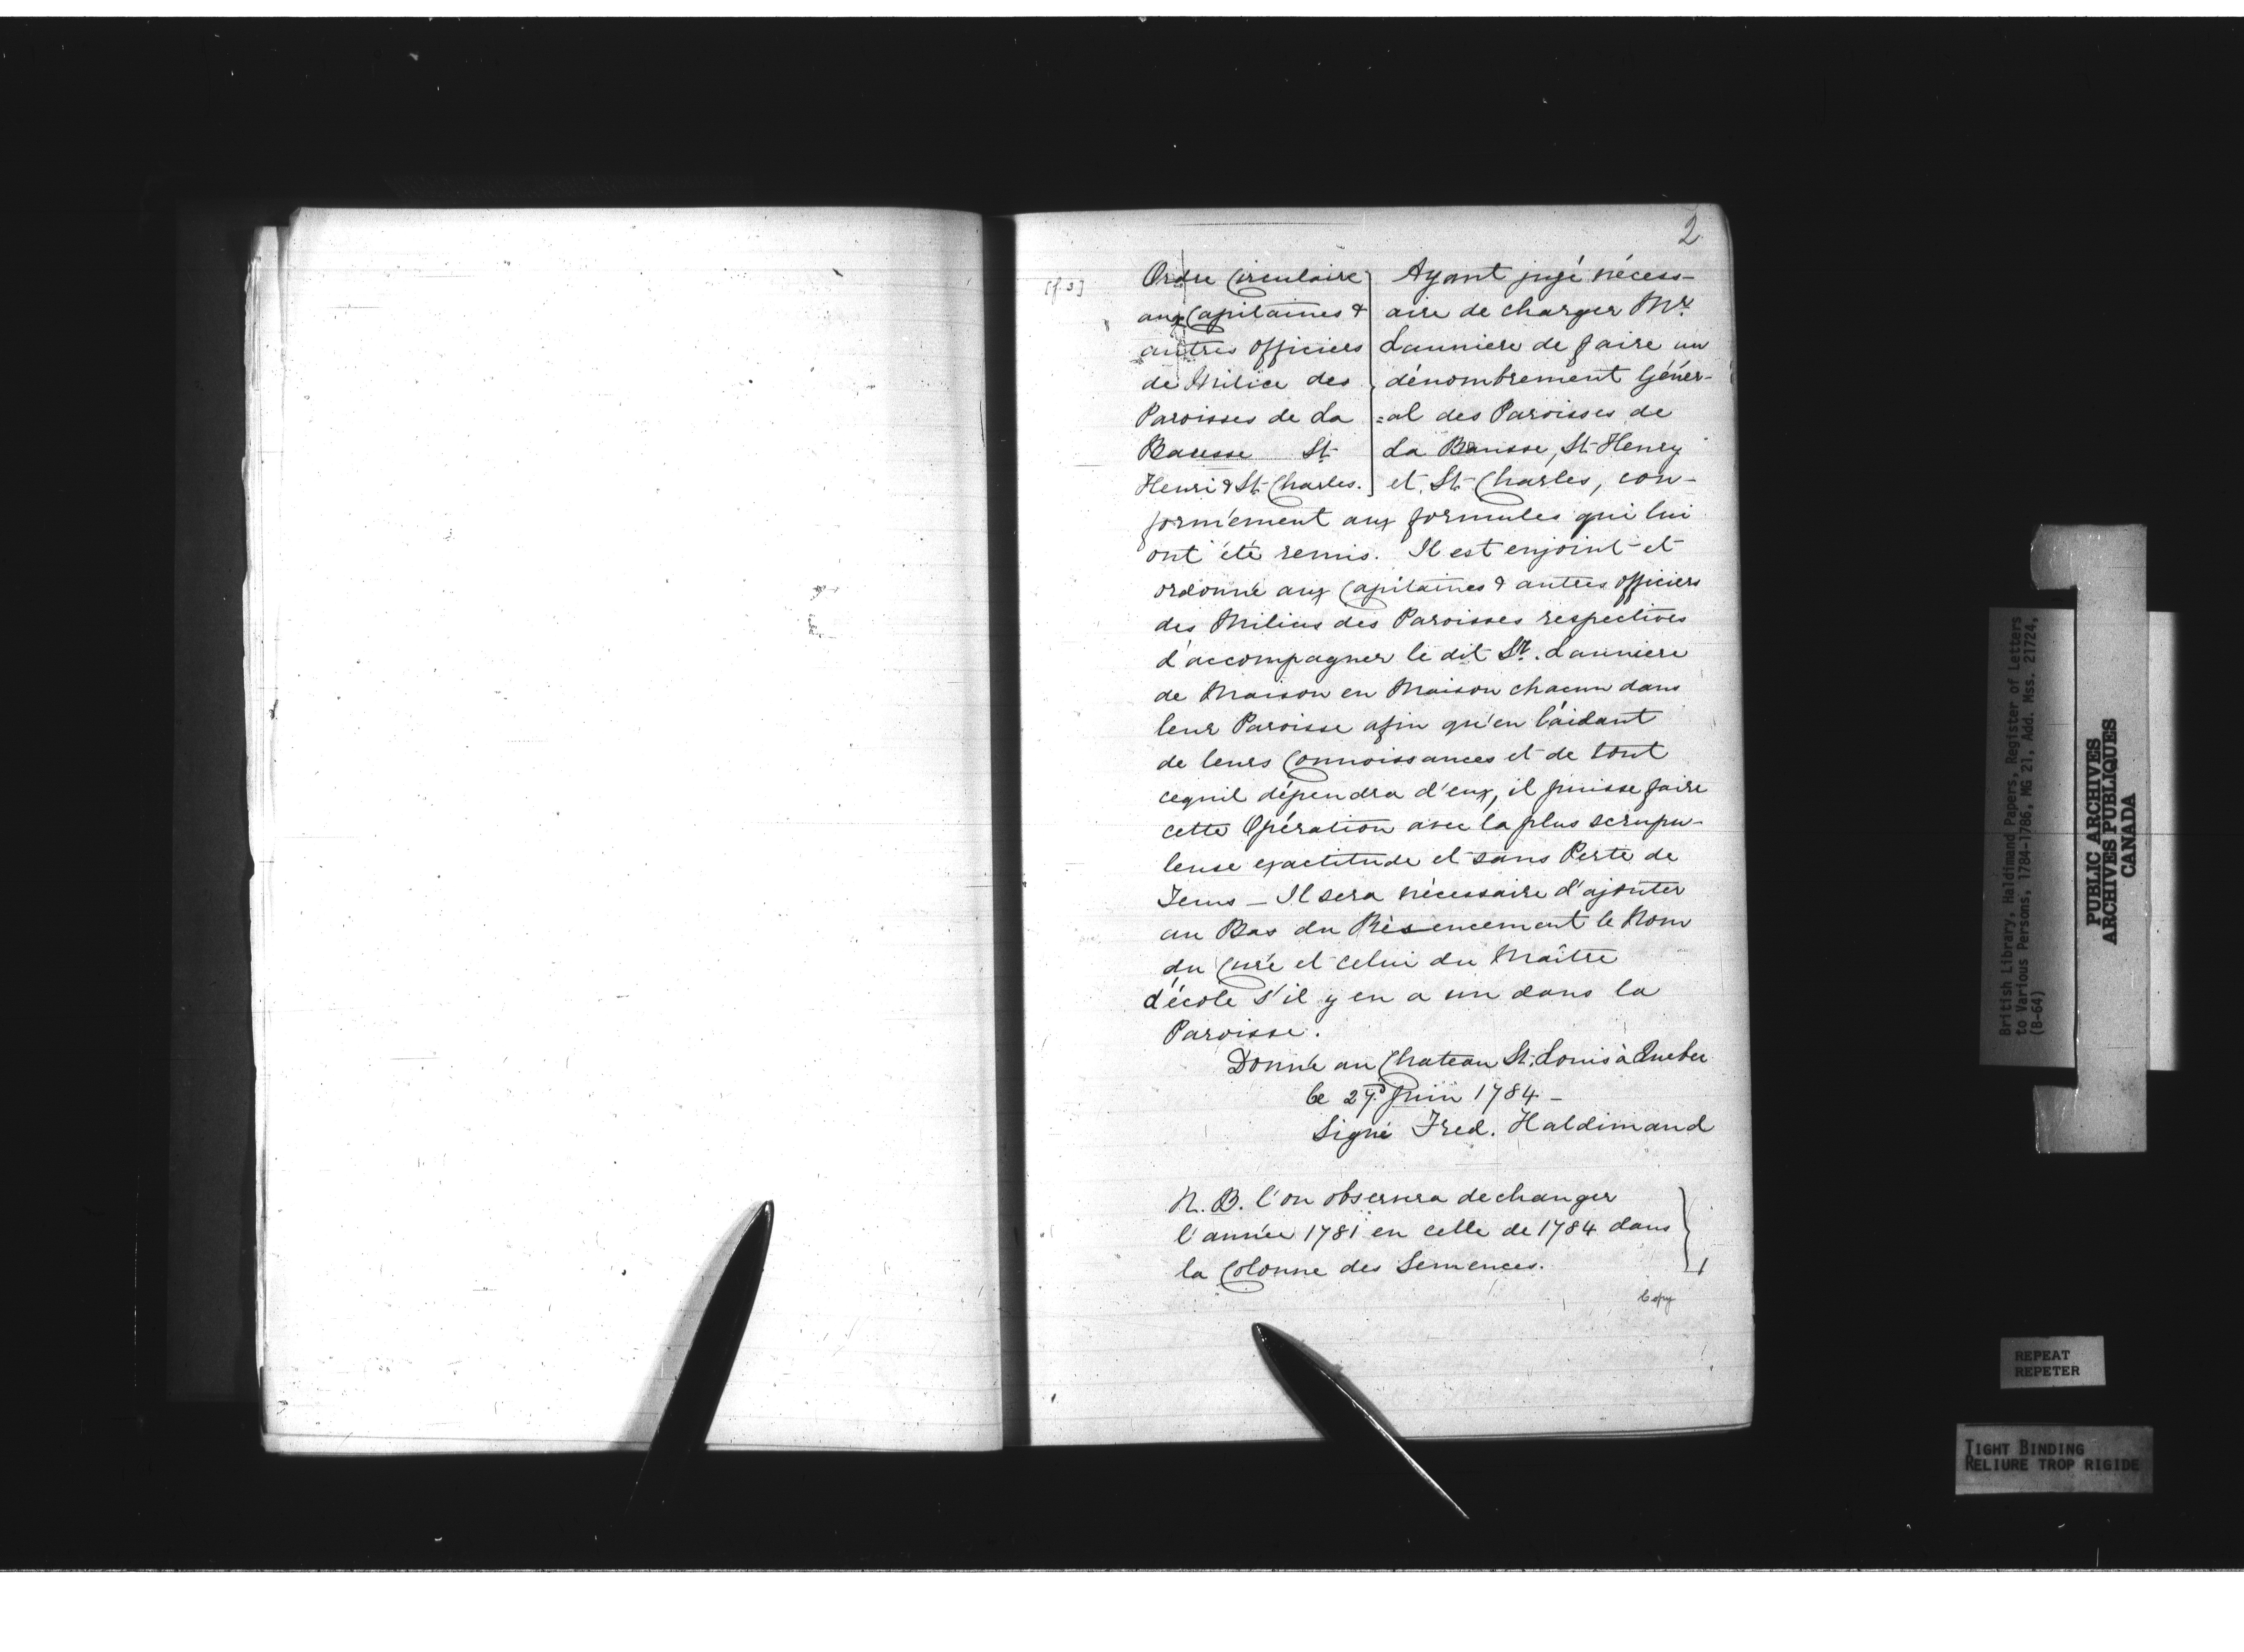 2
[f. 3]
Ordre Circulaire
aux Capitaines &
autres Officiers
de Milice des
Paroisses de La
Bausse St
Henri & St Charles.
Ayant jugé nécess-
aire de charger Mr.
Launiere de faire un
dénombrement Géner-
=al des Paroisses de
La Bausse, St Henry
et St Charles, con-
formément aux formules qui lui
ont été remis. Il est enjoint et
ordonné aux Capitaines & autres Officiers
des Milices des Paroisses respectives
d'accompagner le dit Sr. Launiere
de Maison en Maison chacun dans
leur Paroisse afin qu'en l'aidant
de leurs Connoissances et de tout
cequil dépendra d'eux, il puisse faire
cette Opération avec la plus scrupu-
leuse exactitude et sans Perte de
Tems — Il sera nécessaire d'ajouter
au Bas du Résencement le Nom
du Curé et celui du Maître
d'école s'il y en a un dans la
Paroisse.
Donné au Chateau St. Louis à Quebec
le Juin 1784 —
Signé Fred. Haldimand
N. B. l'on observera de changer
l'année 1781 en celle de 1784 dans
la Colonne des Semences.
Copy
British Library, Haldimand Papers, Register of Letters
to Various Persons, 1784-1786, MG 21, Add. Mss. 21724,
(B-64)
PUBLIC ARCHIVES
ARCHIVES PUBLIQUES
CANADA
REPEAT
REPETER
TIGHT BINDING
RELIURE TROP RIGIDE